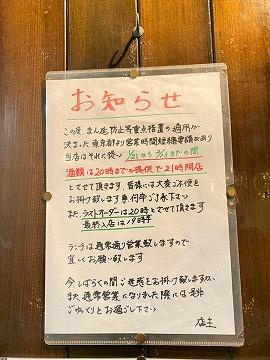 お知らせ
この度、まん延防止等重点措置の適用が
決まった東京都より営業時間短縮要請があり
当店はそれに従い 1/21から
までの間
酒類は20時までの提供で21時閉店
とさせて頂きます。皆様には大変ご不便を
お掛け致します事何卒ご了承下さい
また、ラストオーダーは20時とさせて頂きます
最終入店は19時半
ランチは通常通り営業致しますので
宜しくお願い致します
今しばらくの間ご迷惑をお掛け致しますが、
また、通常営業になりました際には是非
ごゆっくりとお過し下さい
店主